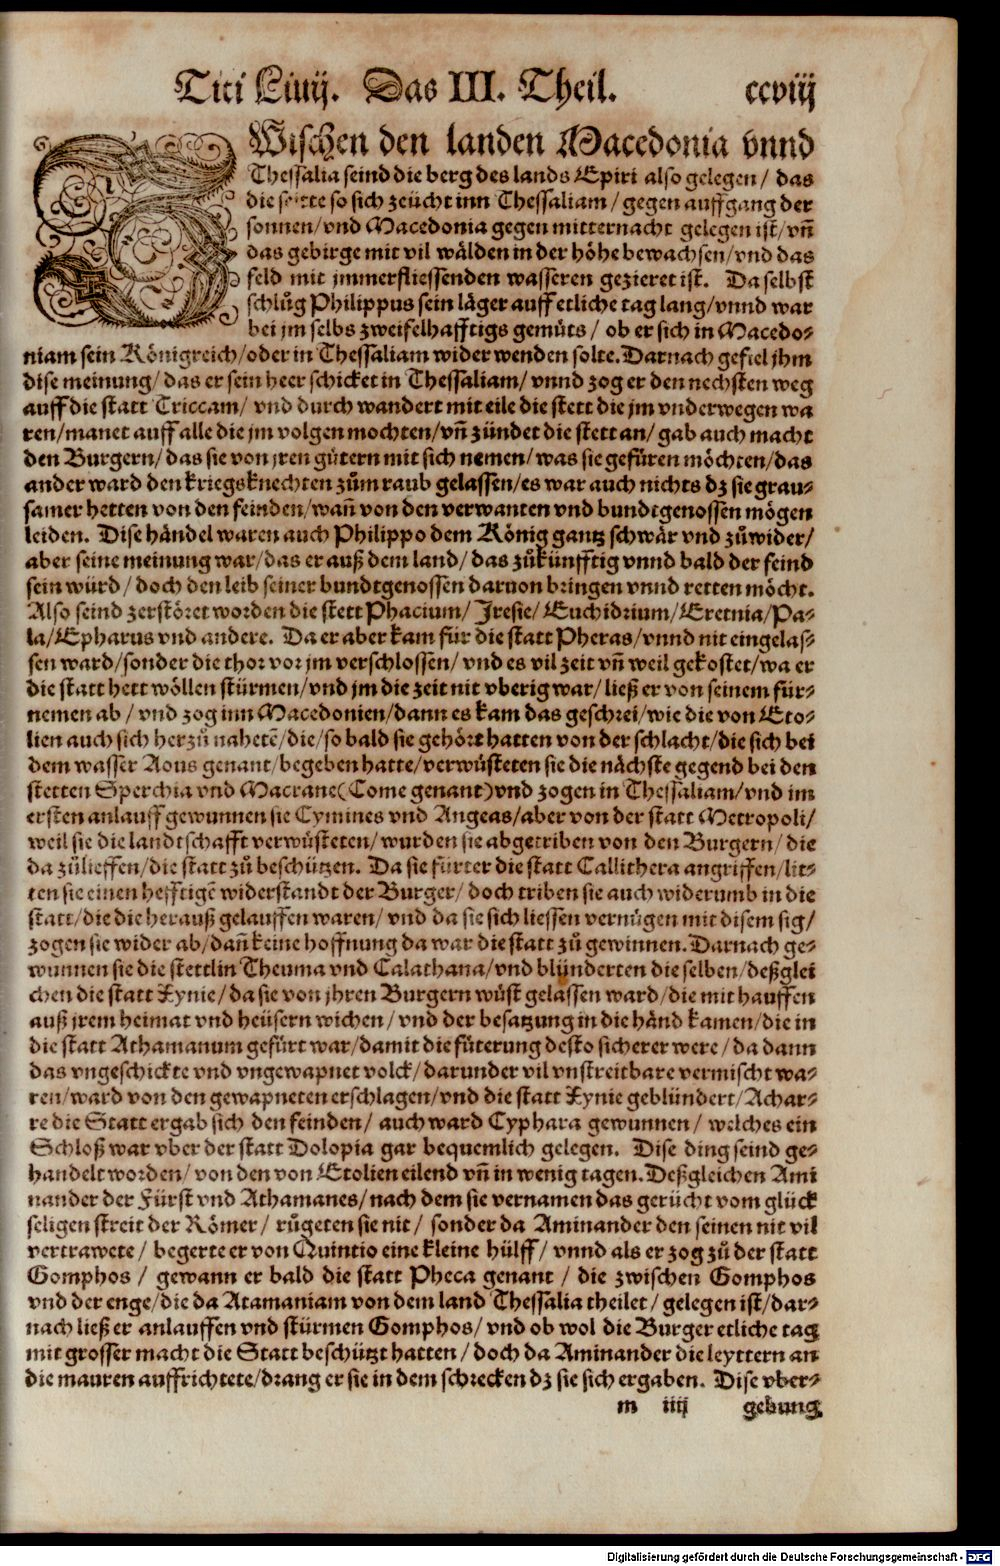 Titi Liuij. Das III. Theil. ccviij
ZWischen den landen Macedonia vnnd
Thessalia seind die berg des lands Epiri also gelegen / das
die seitte so sich zeücht inn Thessaliam / gegen auffgang der
sonnen / vnd Macedonia gegen mitternacht gelegen ist / vñ
das gebirge mit vil wälden in der höhe bewachsen / vnd das
feld mit jmmerfliessenden wasseren gezieret ist. Daselbst
schlůg Philippus sein läger auff etliche tag lang / vnnd war
bei jm selbs zweifelhafftigs gemůts / ob er sich in Macedo⸗
niam sein Königreich / oder in Thessaliam wider wenden solte. Darnach gefiel jhm
dise meinung / das er sein heer schicket in Thessaliam / vnnd zog er den nechsten weg
auff die statt Triccam / vnd durch wandert mit eile die stett die jm vnderwegen wa
ren / manet auff alle die jm volgen mochten / vñ zündet die stett an / gab auch macht
den Burgern / das sie von jren gütern mit sich nemen / was sie gefüren möchten / das
ander ward den kriegsknechten zům raub gelassen / es war auch nichts dz sie grau⸗
samer hetten von den feinden / wañ von den verwanten vnd bundtgenossen mögen
leiden. Dise händel waren auch Philippo dem König gantz schwär vnd zůwider /
aber seine meinung war / das er auß dem land / das zůkünfftig vnnd bald der feind
sein würd / doch den leib seiner bundtgenossen daruon bringen vnnd retten möcht.
Also seind zerstöret worden die stett Phacium / Jresie / Euchidrium / Eretnia / Pa⸗
la / Epharus vnd andere. Da er aber kam für die statt Pheras / vnnd nit eingelas⸗
sen ward / sonder die thor vor jm verschlossen / vnd es vil zeit vñ weil gekostet / wa er
die statt hett wöllen stürmen / vnd jm die zeit nit vberig war / ließ er von seinem für⸗
nemen ab / vnd zog inn Macedonien / dann es kam das geschrei / wie die von Eto⸗
lien auch sich herzů nahetẽ / die / so bald sie gehört hatten von der schlacht / die sich bei
dem wasser Aous genant / begeben hatte / verwüsteten sie die nächste gegend bei den
stetten Sperchia vnd Macrane (Come genant) vnd zogen in Thessaliam / vnd im
ersten anlauff gewunnen sie Cymines vnd Angeas / aber von der statt Metropoli /
weil sie die landtschafft verwüsteten / wurden sie abgetriben von den Burgern / die
da zůlieffen / die statt zů beschützen. Da sie fürter die statt Callithera angriffen / lit⸗
ten sie einen hefftigẽ widerstandt der Burger / doch triben sie auch widerumb in die
statt / die die herauß gelauffen waren / vnd da sie sich liessen vernügen mit disem sig /
zogen sie wider ab / dañ keine hoffnung da war die statt zů gewinnen. Darnach ge⸗
wunnen sie die stettlin Theuma vnd Calathana / vnd blünderten die selben / deßglei
chen die statt Xynie / da sie von jhren Burgern wüst gelassen ward / die mit hauffen
auß jrem heimat vnd heüsern wichen / vnd der besatzung in die händ kamen / die in
die statt Athamanum gefürt war / damit die fůterung desto sicherer were / da dann
das vngeschickte vnd vngewapnet volck / darunder vil vnstreitbare vermischt wa⸗
ren / ward von den gewapneten erschlagen / vnd die statt Xynie geblündert / Achar⸗
re die Statt ergab sich den feinden / auch ward Cyphara gewunnen / welches ein
Schloß war vber der statt Dolopia gar bequemlich gelegen. Dise ding seind ge⸗
handelt worden / von den von Etolien eilend vñ in wenig tagen. Deßgleichen Ami
nander der Fürst vnd Athamanes / nach dem sie vernamen das gerücht vom glück
seligen streit der Römer / růgeten sie nit / sonder da Aminander den seinen nit vil
vertrawete / begerte er von Quintio eine kleine hülff / vnnd als er zog zů der statt
Gomphos / gewann er bald die statt Pheca genant / die zwischen Gomphos
vnd der enge / die da Atamaniam von dem land Thessalia theilet / gelegen ist / dar⸗
nach ließ er anlauffen vnd stürmen Gomphos / vnd ob wol die Burger etliche tag
mit grosser macht die Statt beschützt hatten / doch da Aminander die leyttern an
die mauren auffrichtete / drang er sie in dem schrecken dz sie sich ergaben. Dise vber⸗
m iiij gebung
Digitalisierung gefördert durch die Deutsche Forschungsgemeinschaft - DFG